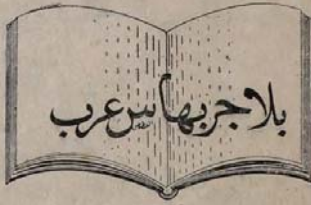 بلاجر بهاس عرب